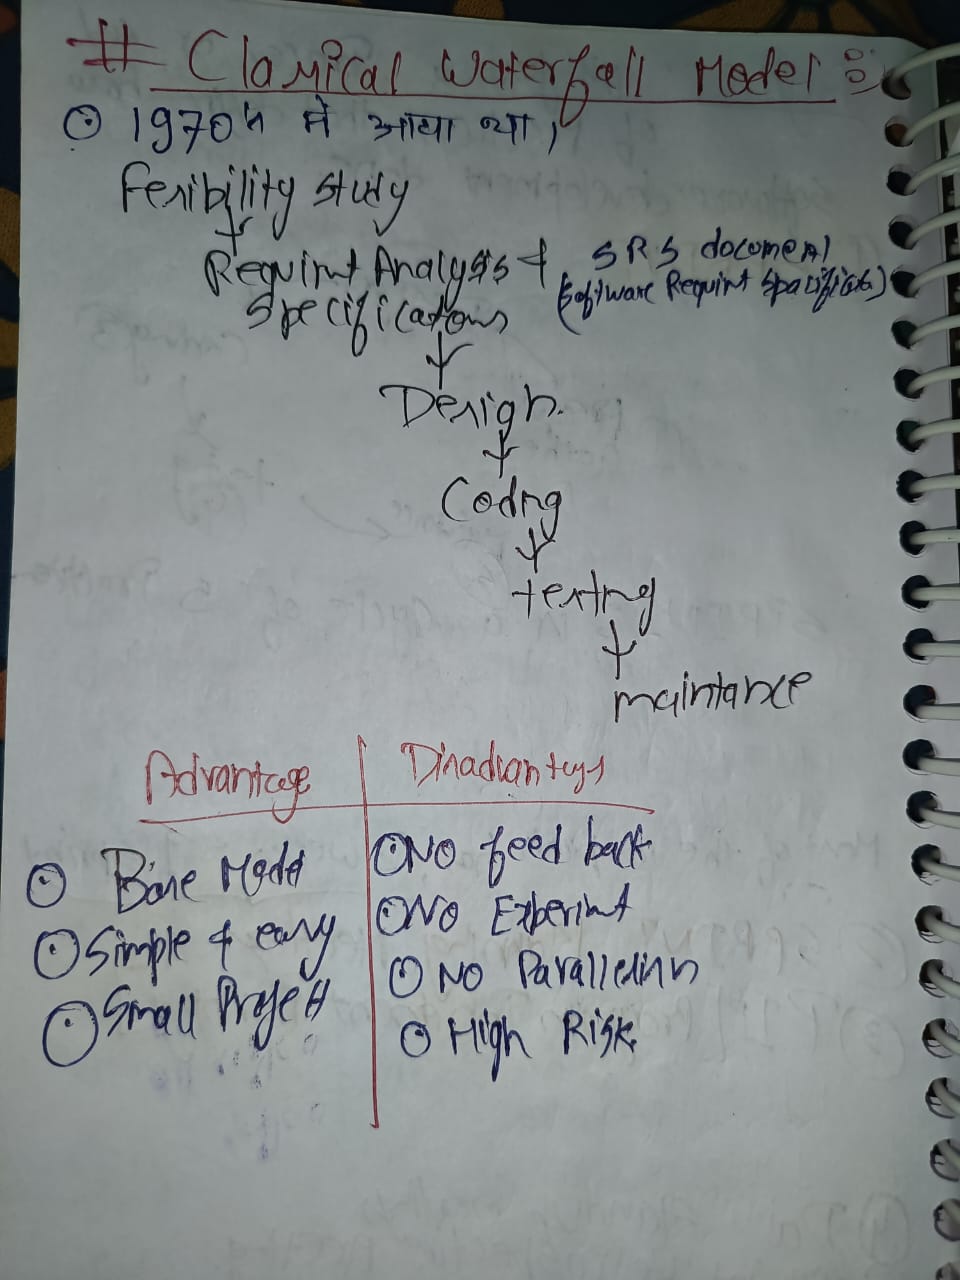 # Classical Waterfall Model :
1970's में आया था,
Fesibility study
Requirmt Analysis & SRS document
Specifications (Software Requirmt Spacifications)
Design.
Coding
testing
maintance
Advantage Disadvantages
Base Model NO feed back
Simple & easy NO Experimt
Small Project NO Parallelism
High Risk.